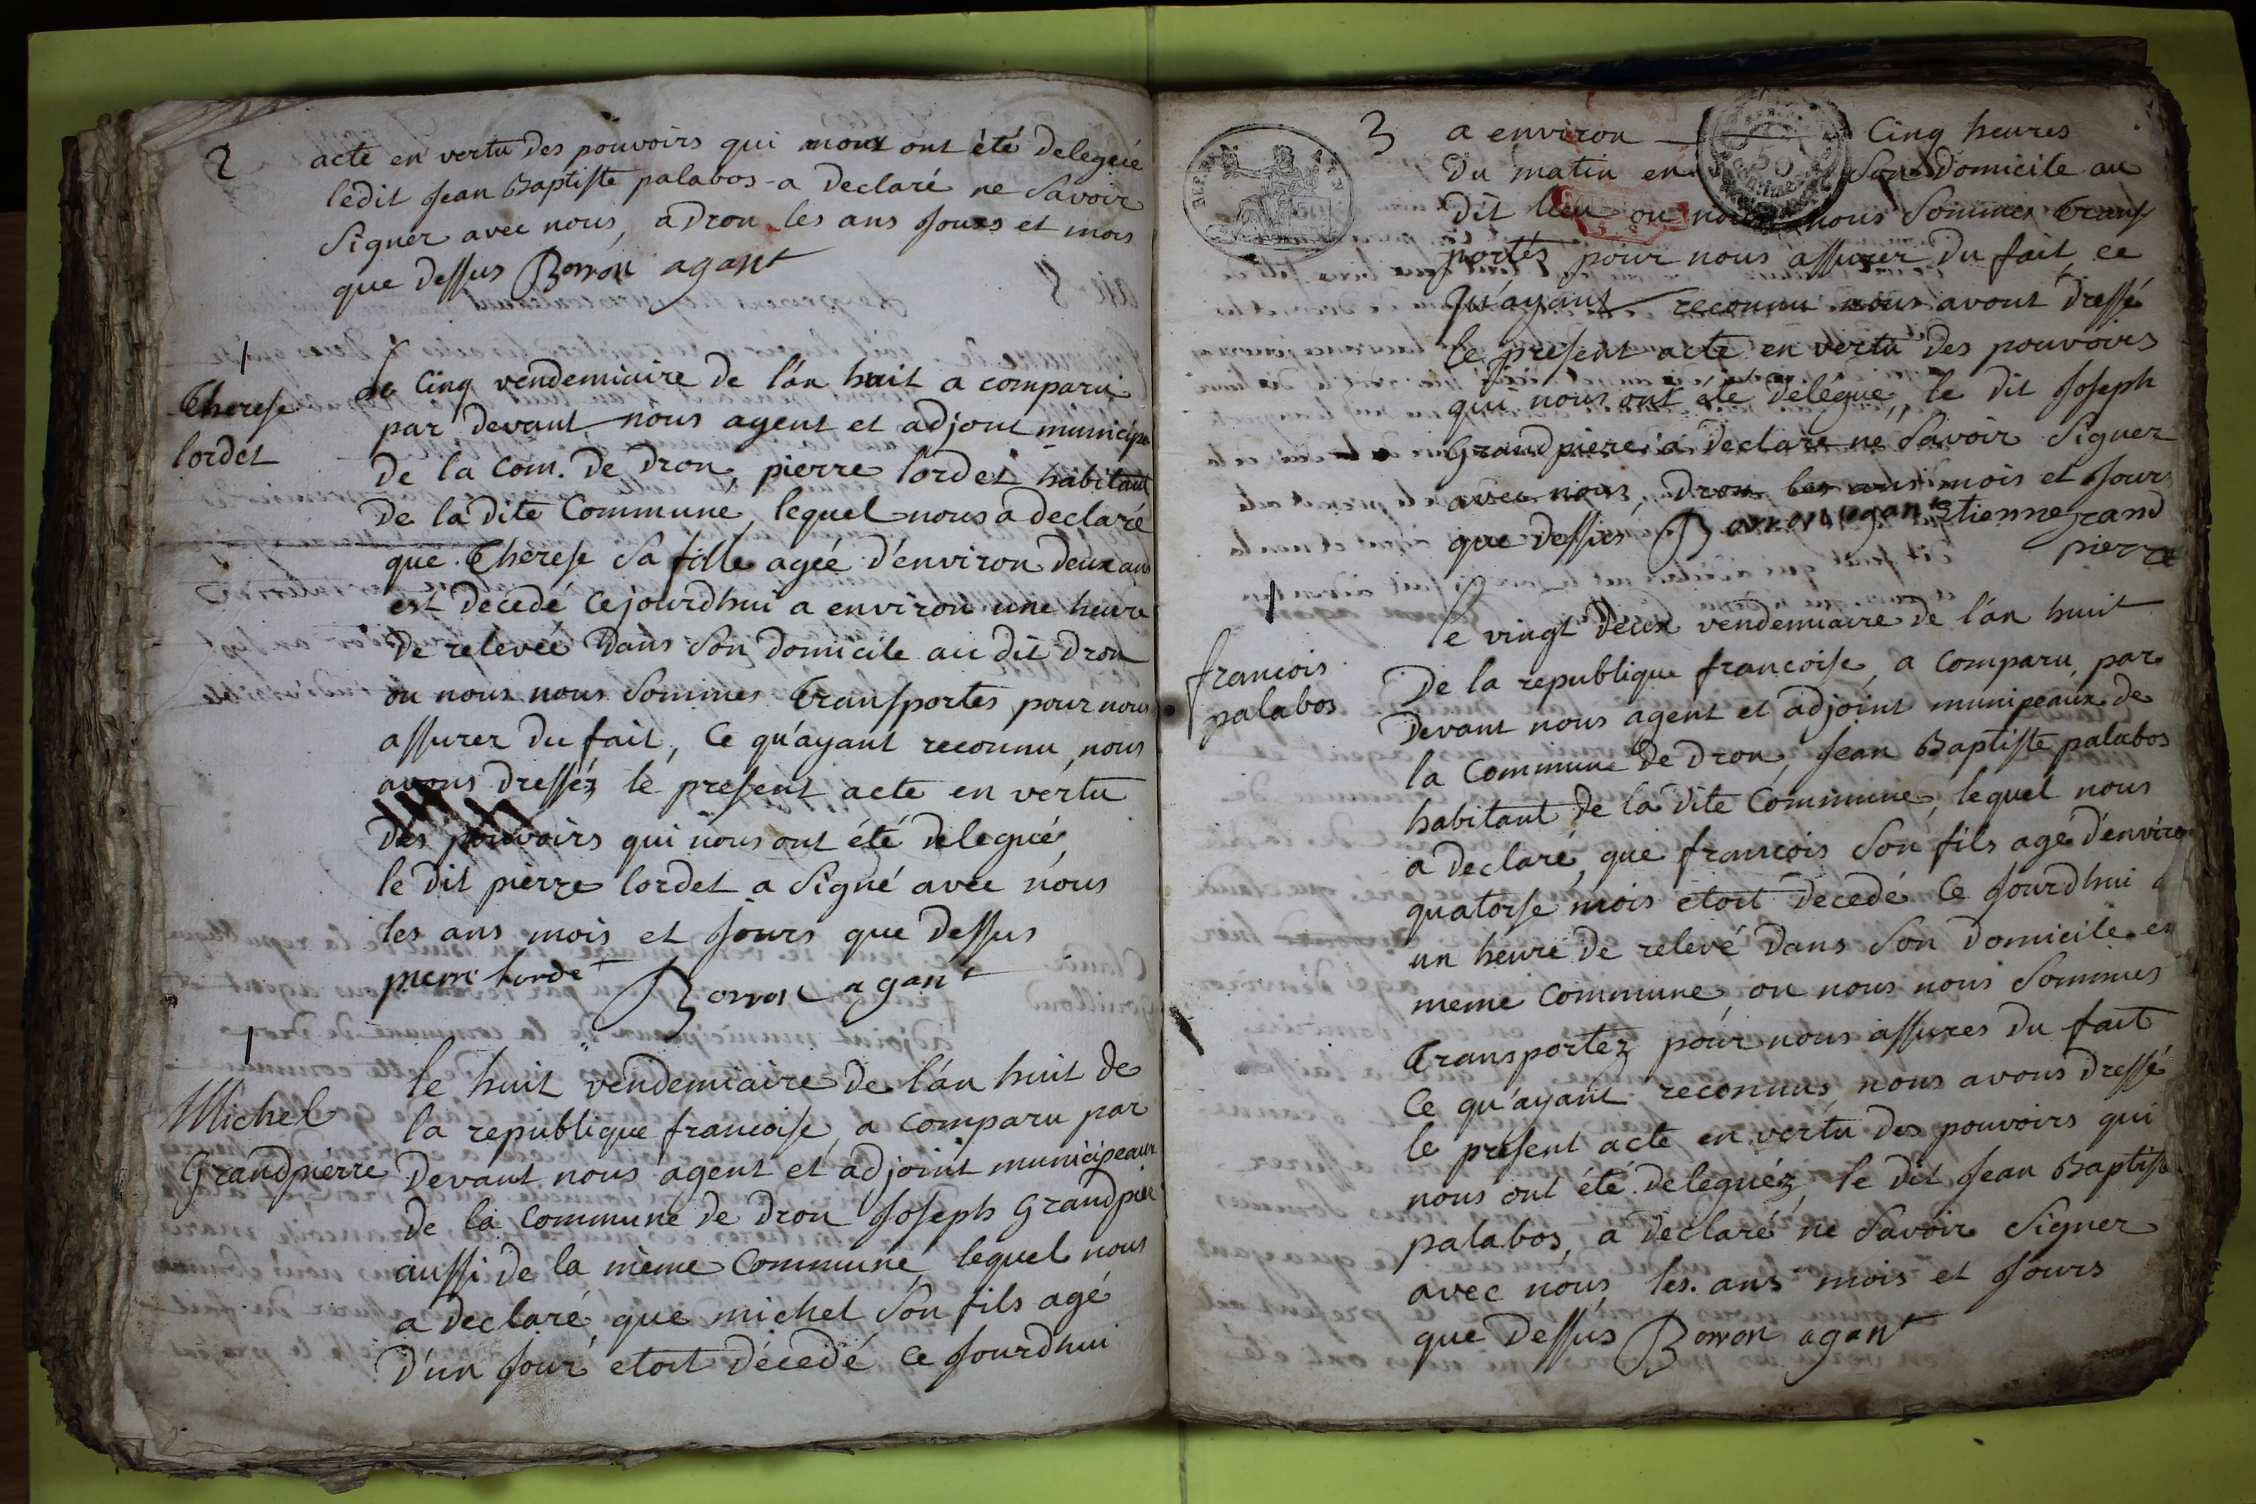 2
acte en vertu des pouvoirs qui nous ont été delegué
ledit Jean Baptiste palabos a declaré ne Savoir
Signer avec nous, a dron les ans Jours et mois
que dessus Borron agant
1
Therese
lordet
le Cinq vendemiaire de l'an huit a comparu
par devant nous agent et adjoint municipa
de la Com. de dron, pierre lordet habitant
de la dite Commune, lequel nous a declaré
que Therese Sa fille ageé d'environ deux ans
est decedé cejourdhui a environ une heure
de relevéé dans Son domicile au dit dron
ou nous nous Sommes Transportés pour nous
assurer du fait, Ce qu'ayant reconnu, nous
avons dressez le present acte en vertu
des pouvoirs qui nous ont été delegué,
le dit pierre lordet a Signé avec nous
les ans mois et Jours que dessus
pierre lorde Borron agant
1
Michel
Grandpierre
le huit vendemiaire de l'an huit de
la republique francoise, a comparu par
devant nous agent et adjoint municipeaux
de la Commune de dron Joseph Grandpier
aussi de la même Commune, lequel nous
a declaré que michel Son fils agé
d'un Jour etoit décedé ce Jourdhui
3
a environ Cinq heures
du matin en Son domicile au
dit lieu ou nous nous Sommes Trans
portés pour nous assurer du fait, ce
Qu'ayant reconnu nous avont dressé
le present acte en vertu des pouvoirs
qui nous ont été delégué, le dit Joseph
Grandpiere a declaré ne Savoir Signer
avec nous, dron les ans mois et Jours
que dessus Borron agant Etienne grand
pierre
1
francois
palabos
le vingt deux vendemiaire de l'an huit
De la republique francoise, a Comparu par
Devant nous agent et adjoint munipeaux de
la Commune de dron, Jean Baptiste palabos
habitant de la dite Commune, lequel nous
a declaré, que francois Son fils agé d'enviro
quatorse mois etoit decedé Ce Jourdhui a
un heure de relevé dans Son domicile en
meme Commune ou nous nous Sommes
Transportez pour nous assures du fait
Ce qu'ayant reconnus, nous avons dressé
le présent acte en vertu des pouvoirs qui
nous ont été deleguéz, le dit Jean Baptiste
palabos, a declaré ne Savoir Signer
avec nous les ans mois et Jours
que dessus Borron agant